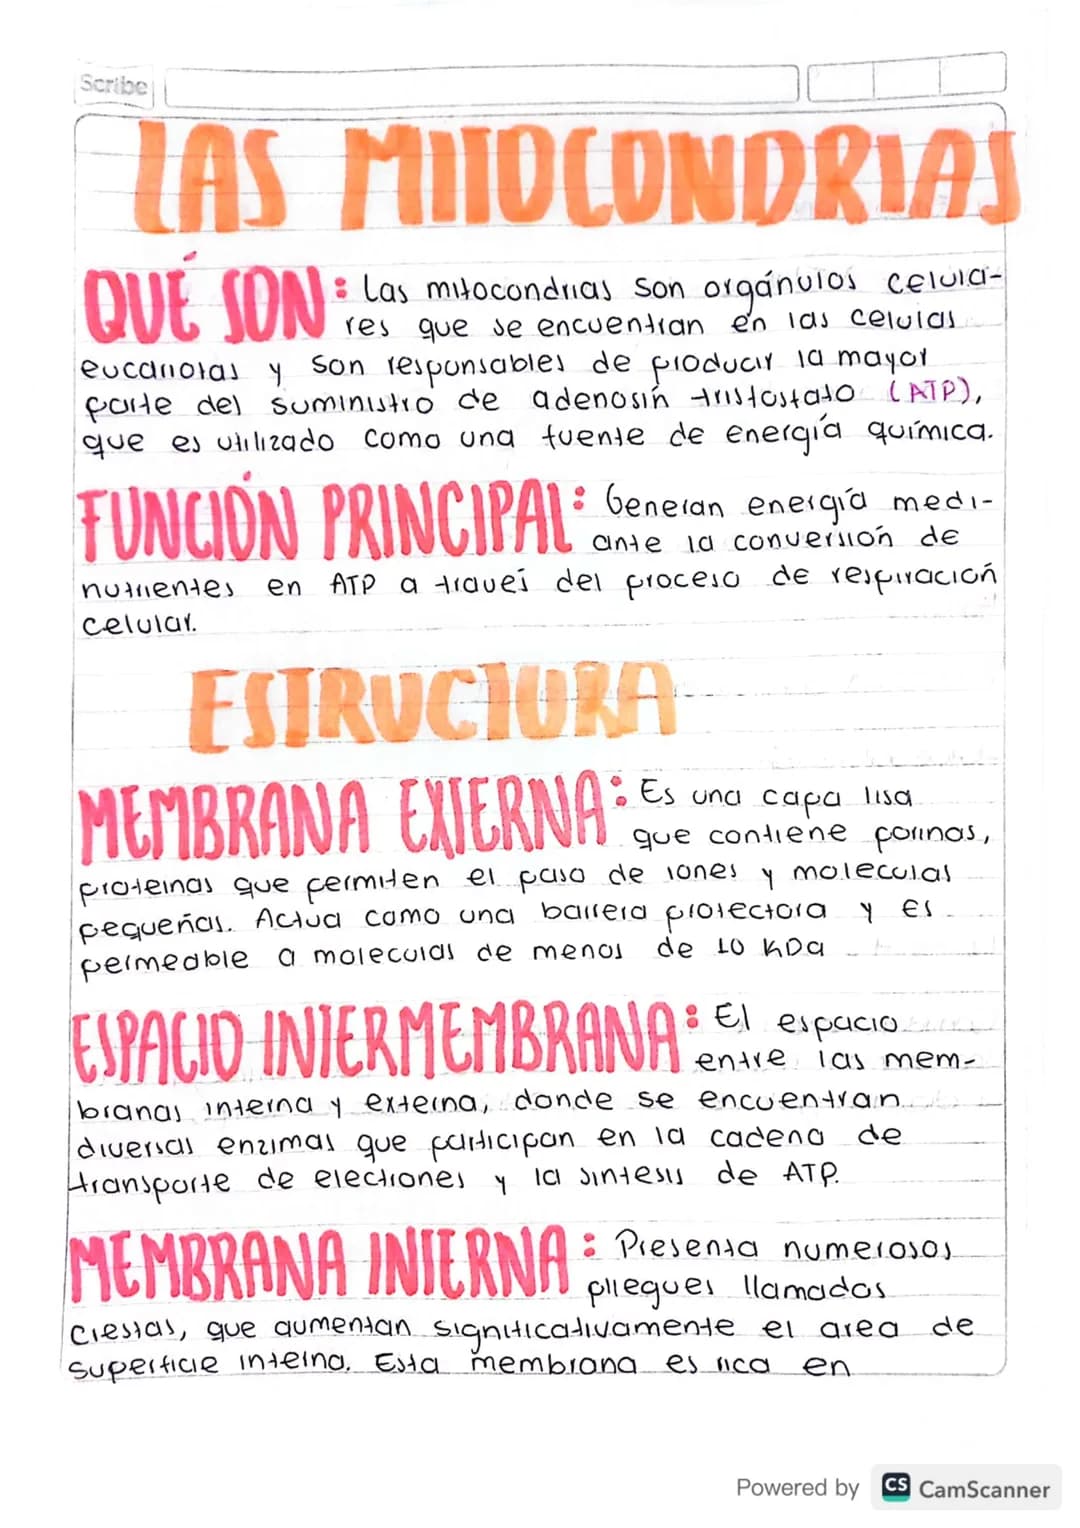 Scribe
LAS MITOCONDRIAS
QUÉ SON: Las mitocondrias son orgánulos celula-
res que se encuentran en las celulas
eucariotas y son responsables de producir la mayor
parte del suministro de adenosín trisfosfato (ATP),
que es utilizado como una fuente de energía química.
FUNCIÓN PRINCIPAL: Generan energía medi-
ante la conversión de
nutrientes en ATP a través del proceso de respiración
celular.
ESTRUCTURA
MEMBRANA EXTERNA: Es una capa lisa
que contiene porinas,
proteinas que permiten el paso de iones y moleculas
pequeñas. Actua como una barrera protectora y es
permeable a moleculas de menos de 10 KDa
ESPACIO INTERMEMBRANA: El espacio
entre las mem-
branas interna y externa, donde se encuentran
diversas enzimas que participan en la cadena de
transporte de electrones y la sintesis de ATP.
MEMBRANA INTERNA: Presenta numerosos
pliegues llamados
crestas, que aumentan significativamente el area de
superficie interna. Esta membrana es rica en
Powered by CS CamScanner